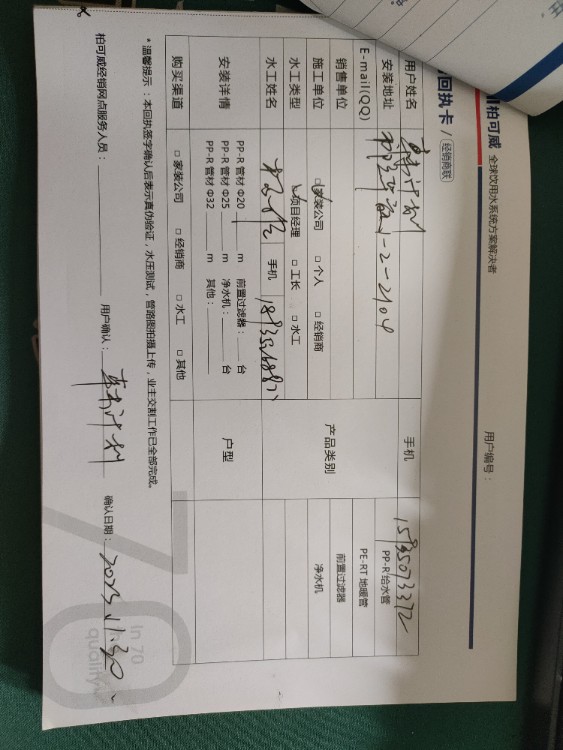 柏可威 全球饮用水系统方案解决者
用户编号：
回执卡 / 经销商联
用户姓名
手机 15835073372
安装地址 1-2-2104
E-mail(QQ)
销售单位
施工单位 □家装公司 □ 个人 □ 经销商
水工类型 □项目经理 □ 工长 □ 水工
水工姓名 手机
产品类别
PP-R 给水管
PE-RT 地暖管
前置过滤器
净水机
安装详情
PP-R 管材 Φ20 m 前置过滤器： 台
PP-R 管材 Φ25 m 净水机： 台
PP-R 管材 Φ32 m 其他：
户型
购买渠道 □ 家装公司 □ 经销商 □ 水工 □ 其他
* 温馨提示：本回执签字确认后表示真伪验证，水压测试，管路图拍摄上传，业主交割工作已全部完成。
柏可威经销网点服务人员： 用户确认： 确认日期：2025.11.30
In 70
quality